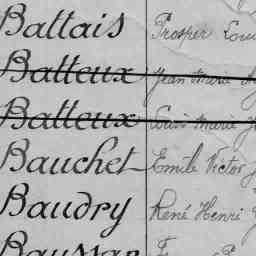 Battais Prosper Loui
Batteux Jean Marie
Batteux Louis Marie
Bauchet Emile Victor
Baudry René Henri
Baussan